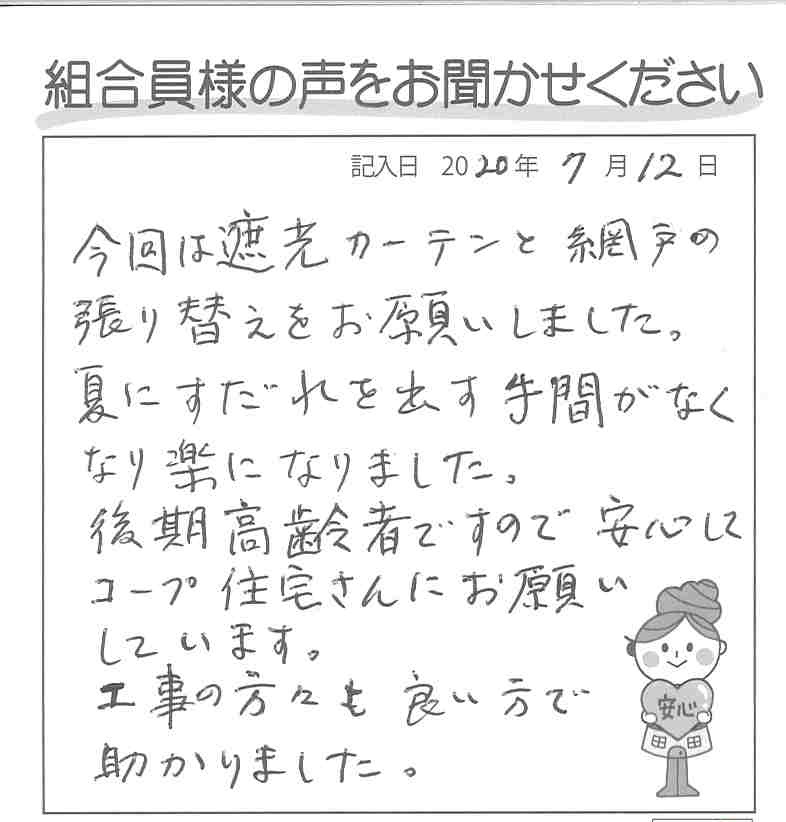 組合員様の声をお聞かせください
記入日 2020年 7月12日
今回は遮光カーテンと網戸の
張り替えをお願いしました。
夏にすだれを出す手間がなく
なり楽になりました。
後期高齢者ですので安心して
コープ住宅さんにお願い
しています。
工事の方々も良い方で
助かりました。
安心